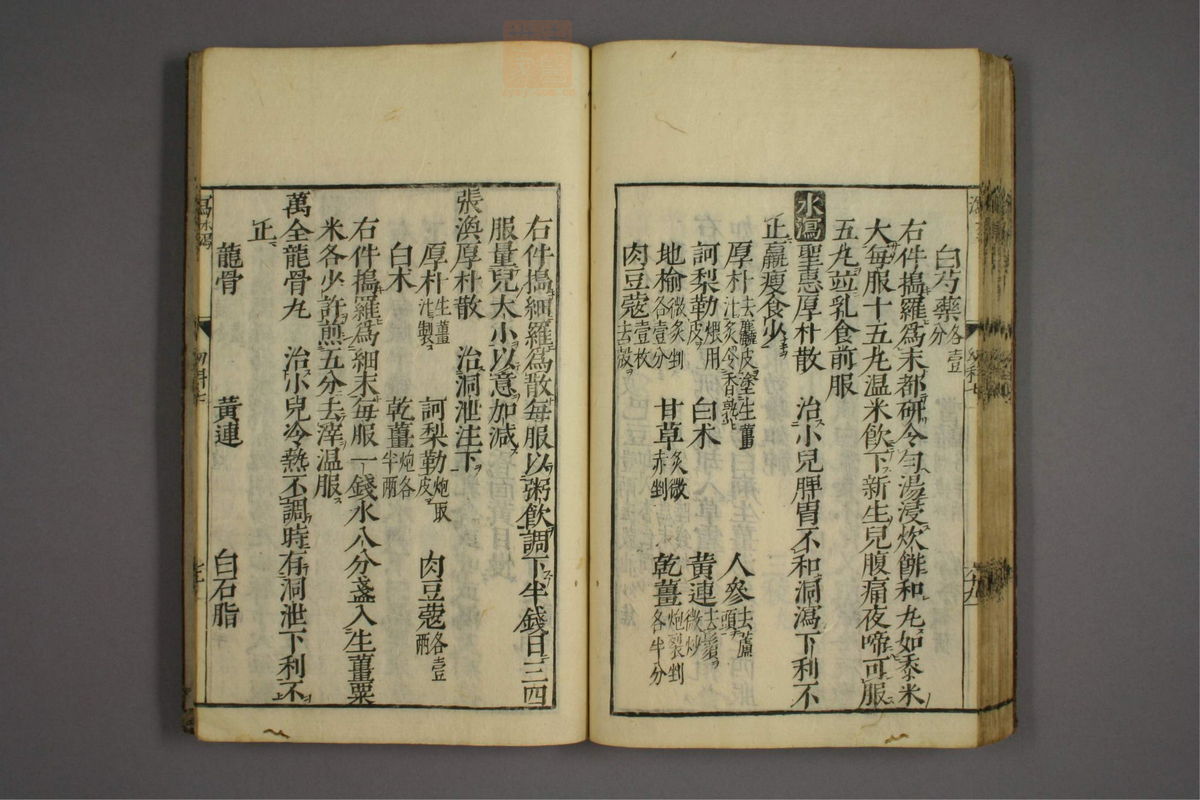 白芍藥各壹分
右件搗羅爲末都研令勻湯浸炊餅和丸如黍米
大每服十五丸温米飲下新生兒腹痛夜啼可服
五丸竝乳食前服
水瀉聖惠厚朴散 治小兒脾胃不和洞瀉下利不
止羸瘦食少
厚朴去麤皮塗生薑汁炙令香乾 人參去蘆頭
訶梨勒煨用皮 白朮 黄連去鬚微炒
地榆微炙剉各壹分 甘草炙微赤剉 乾薑炮裂剉各半分
肉豆蔻壹枚去殼
右件搗細羅爲散每服以粥飲調下半錢日三四
服量兒大小以意加減
張渙厚朴散 治洞泄注下
厚朴生薑汁製 訶梨勒炮取皮 肉豆蔻各壹兩
白朮 乾薑炮各半兩
右件搗羅爲細末每服一錢水八分盞入生薑粟
米各少許煎五分去滓温服
萬全龍骨丸 治小兒冷熱不調時有洞泄下利不
止
龍骨 黄連 白石脂